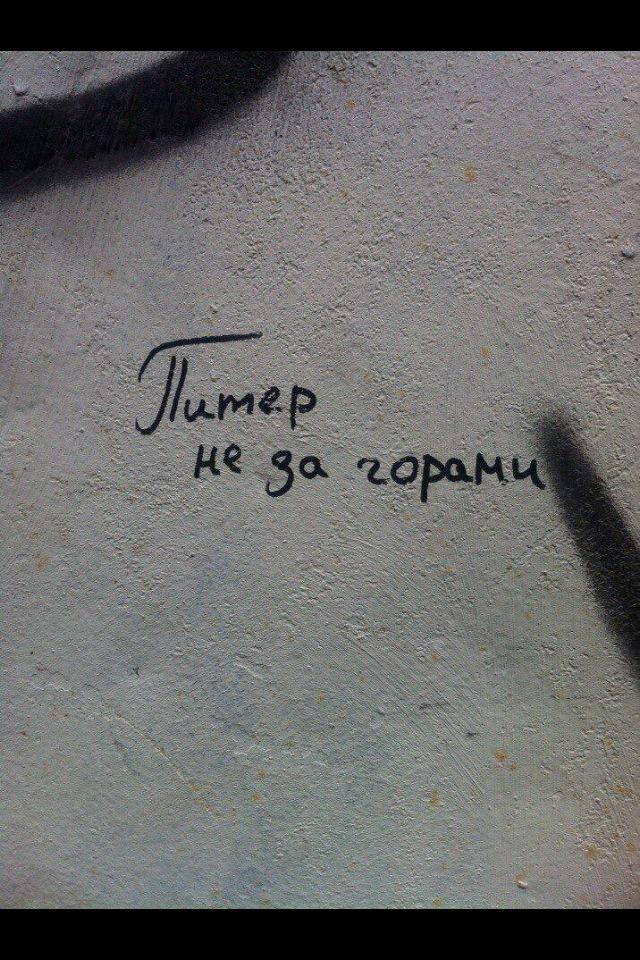 Питер
не за горами